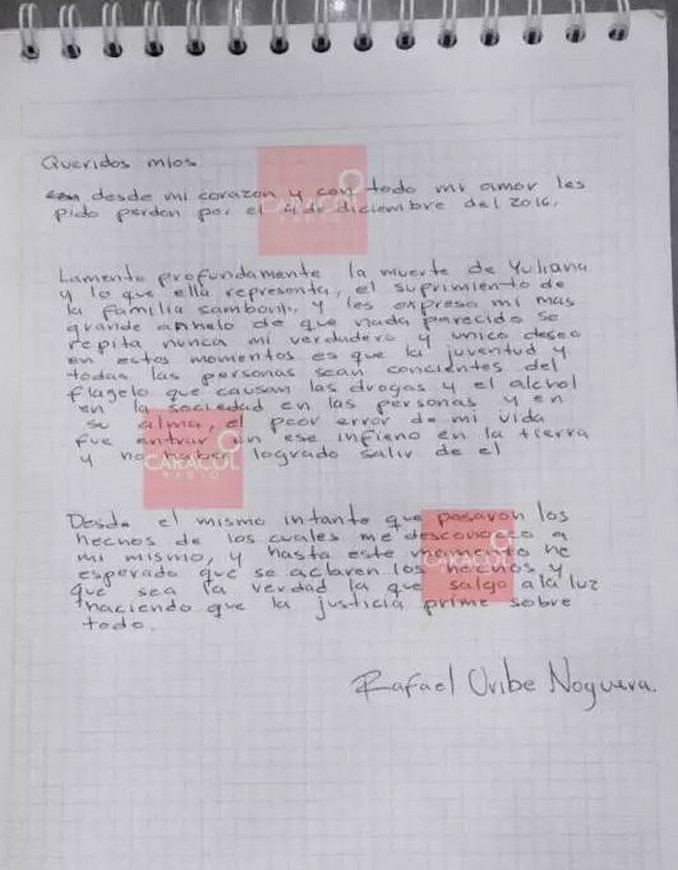 Queridos mios
desde mi corazon y con todo mi amor les
pido perdon por el 4 de diciembre del 2016.
Lamento profundamente la muerte de Yuliana
y lo que ella representa, el suprimiento de
la familia samboni, y les expreso mi mas
grande annelo de que nada parecido se
repita nunca mi verdadero y unico deseo
en estos momentos es que la juventud y
todas las personas sean concientes del
flagelo que causan las drogas y el alchol
en la sociedad en las personas y en
su alma, el peor error de mi vida
fue entrar en ese infieno en la tierra
y no haber logrado salir de el
Desde el mismo intante que pasaron los
hechos de los cuales me desconozco a
mi mismo, y hasta este momento he
esperado que se aclaren los hechos y
que sea la verdad la que salga a la luz
haciendo que la justicia prime sobre
todo.
Rafael Uribe Noguera.
CARACOL
RADIO
CARACOL
RADIO